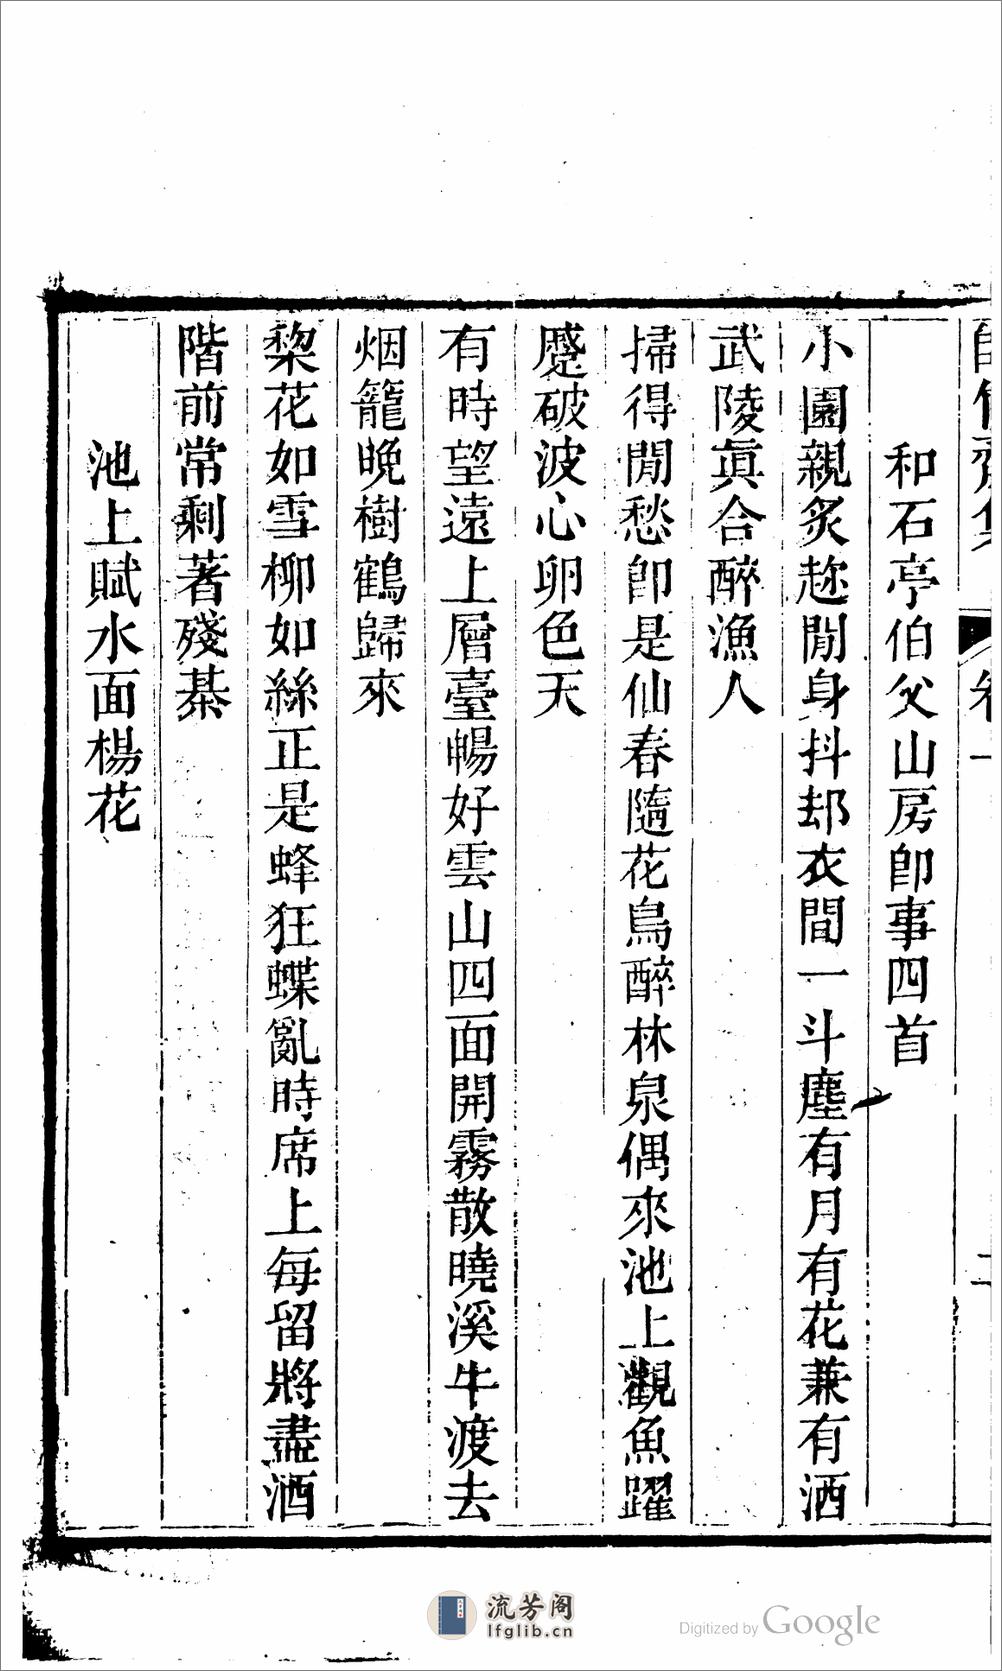 和石亭伯父山房卽事四首
小園親炙趂閒身抖却衣間一斗塵有月有花兼有酒
武陵眞合醉漁人
掃得閒愁卽是仙春隨花鳥醉林泉偶來池上觀魚躍
蹙破波心卵色天
有時望遠上層臺暢好雲山四面開霧散曉溪牛渡去
烟籠晚樹鶴歸來
棃花如雪柳如絲正是蜂狂蝶亂時席上每留將盡酒
階前常剩著殘棊
池上賦水面楊花
流芳阁
lfglib.cn
Digitized by Google